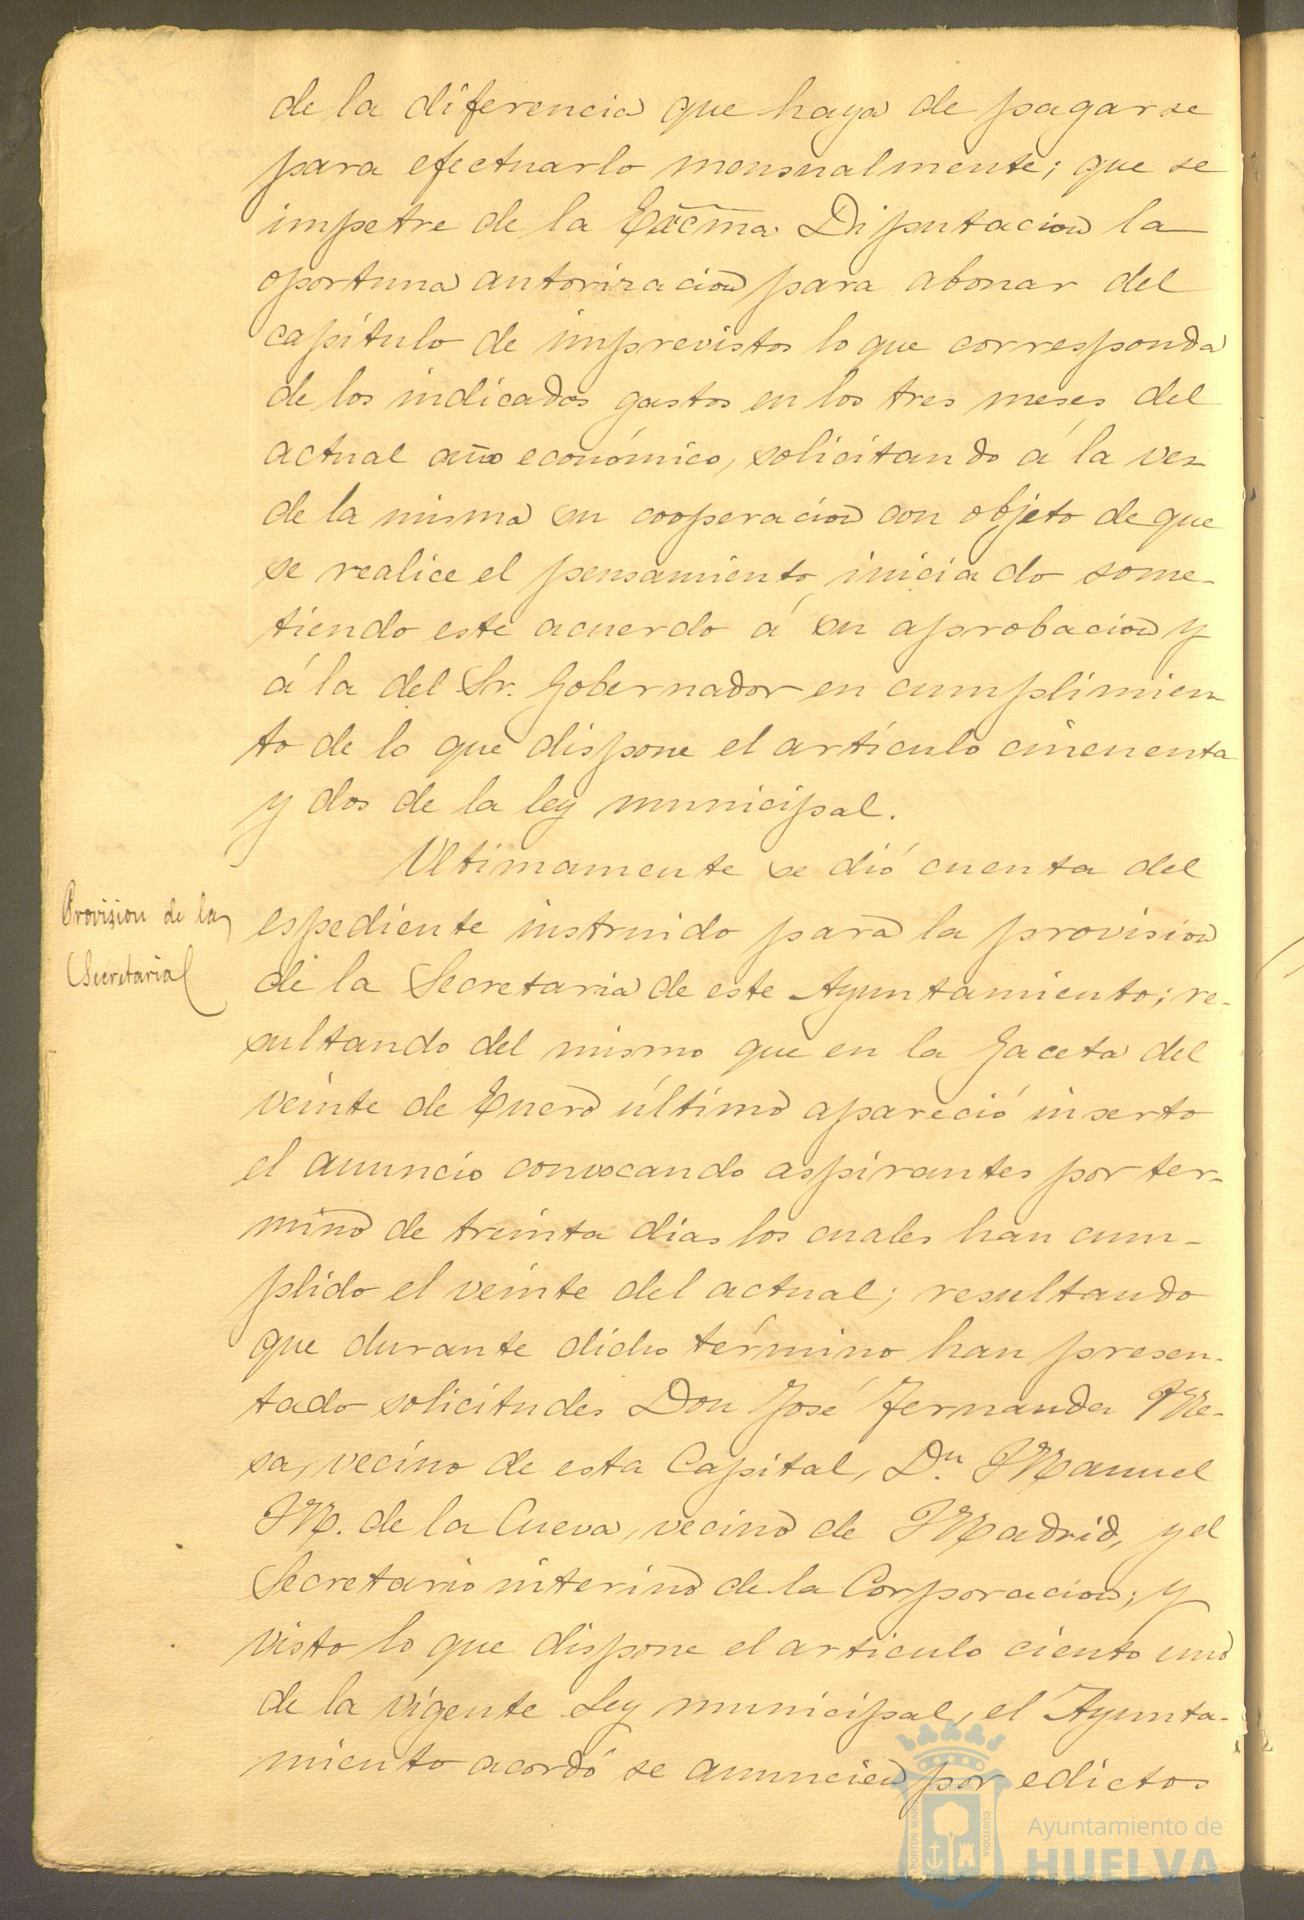 de la diferencia que haya de pagarse
para efectuarlo mensualmente; que se
impetre de la Excma Diputacion la
oportuna autorizacion para abonar del
capítulo de imprevistos lo que corresponda
de los indicados gastos en los tres meses del
actual año económico, solicitando á la vez
de la misma su cooperacion con objeto de que
se realice el pensamiento iniciado some-
tiendo este acuerdo á su aprobacion y
á la del Sr. Gobernador en cumplimien
to de lo que dispone el artículo cincuenta
y dos de la ley municipal.
Provision de la
Secretaria
Ultimamente se dió cuenta del
espediente instruido para la provision
de la Secretaria de este Ayuntamiento; re-
sultando del mismo que en la Gaceta del
veinte de Enero último apareció inserto
el anuncio convocando aspirantes por ter-
mino de treinta dias los cuales han cum-
plido el veinte del actual; resultando
que durante dicho término han presen-
tado solicitudes Don José Fernandez Me-
sa, vecino de esta Capital, Dn Manuel
M. de la Cueva, vecino de Madrid, y el
Secretario interino de la Corporacion; y
visto lo que dispone el articulo ciento uno
de la vigente Ley municipal, el Ayunta-
miento acordó se anuncien por edictos
PORTUS MARIS
CUSTODIA
Ayuntamiento de
HUELVA